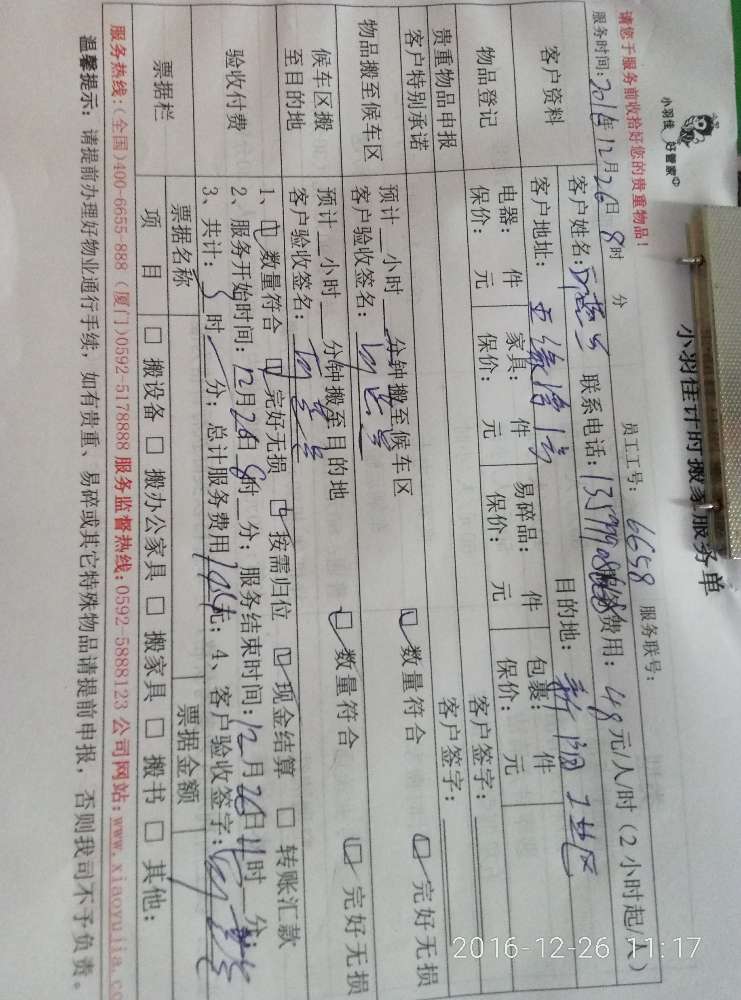 小羽佳 好管家
小羽佳计时搬家服务单
请您于服务前收拾好您的贵重物品！
服务时间：2016年12月26日8时 分 员工工号：6658 服务联号：
客户资料
客户姓名： 联系电话： 服务费用：48元/人/时（2小时起/人）
客户地址： 目的地：
物品登记
电器： 件 家具： 件 易碎品： 件 包裹： 件
保价： 元 保价： 元 保价： 元 保价： 元
客户签字：
贵重物品申报
客户特别承诺
客户签字：
物品搬至候车区
预计 小时 分钟搬至候车区
客户验收签名：
数量符合 完好无损
候车区搬至目的地
预计 小时 分钟搬至目的地
客户验收签名：
数量符合 完好无损
验收付费
1、数量符合 完好无损 按需归位 现金结算 转账汇款
2、服务开始时间：12月26日8时 分；服务结束时间：12月26日11时 分；
3、共计：3时 分；总计服务费用 元；4、客户验收签字：
票据栏
票据名称 票据金额
项目 搬设备 搬办公家具 搬家具 搬书 其他：
服务热线：（全国）400-6655-888（厦门）0592-5178888 服务监督热线：0592-5888123 公司网站：www.xiaoyujia.co
温馨提示：请提前办理好物业通行手续，如有贵重、易碎或其它特殊物品请提前申报，否则我司不予负责。
2016-12-26 11:17